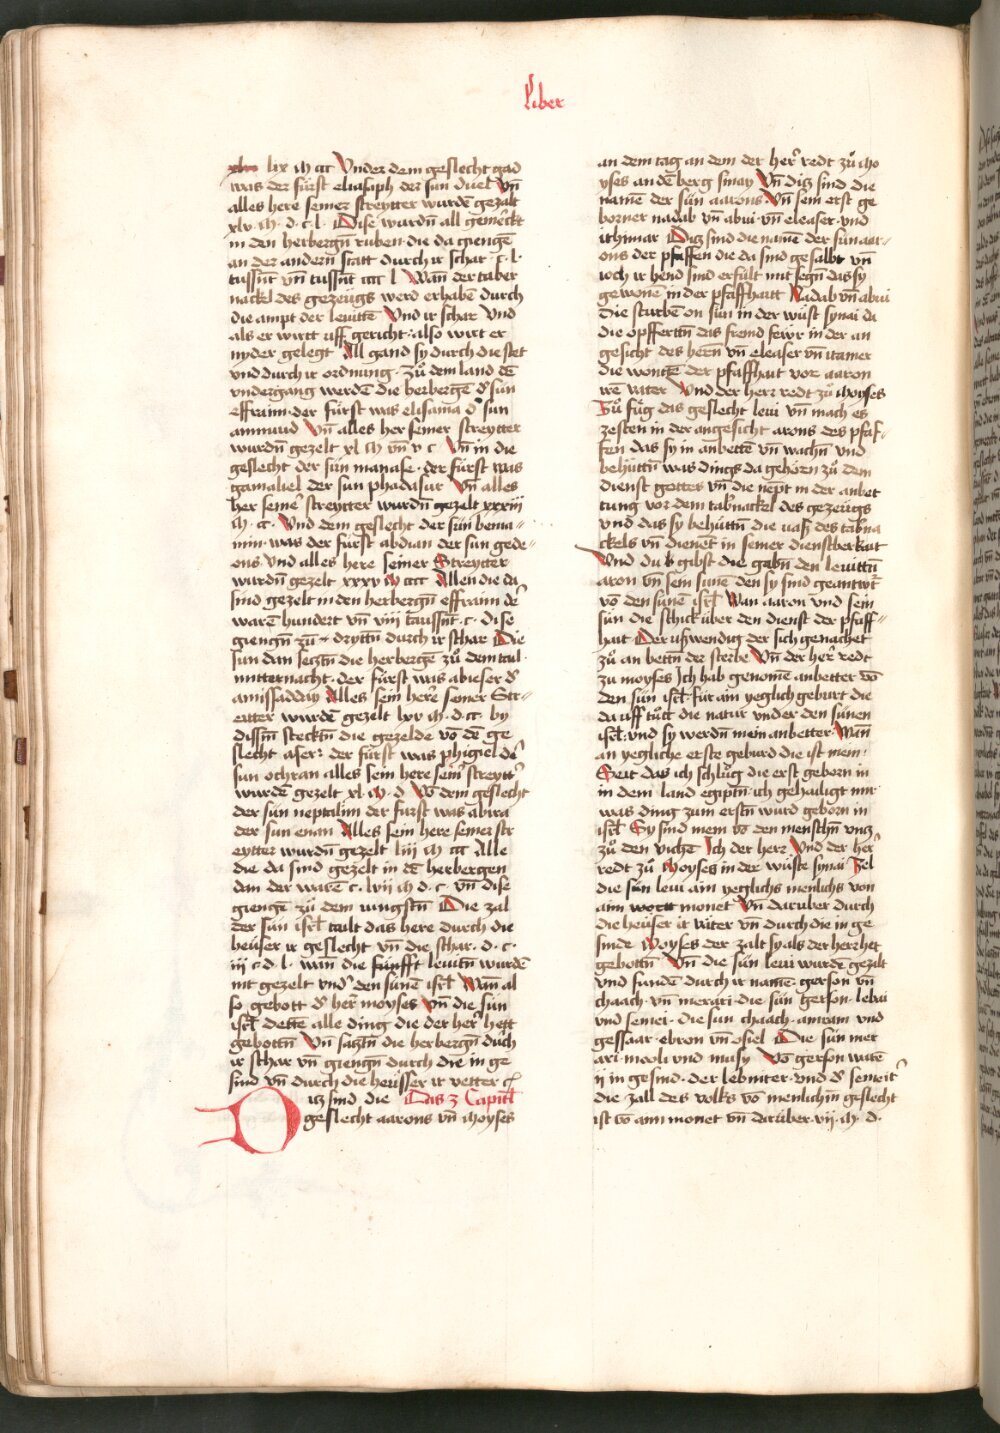 Liber
lix M ccc Vnder dem geslecht gad
was der fúrst eliasaph der sun duel Vn̄
alles here seiner streytter wurdē gezalt
xlv · M · d · c · l · Dise wurdn̄ all gemerckt
in den herbergn̄ ruben · die da giengē
an der andern statt durch ir schar · c · l ·
tussn̄t vn̄ tussn̄t cccc l Wan̄ der taber
nackel des gezeügs werd erhabē durch
die ampt der leuittē Vnd ir schar Vnd
als er wirtt uff gericht · also wirt er
nyder gelegt All gand sy durch die stet
vnd durch ir ordnung · Zů dem land dē
vndergang werdē die herbergē d' sún
effraim · der fúrst was elisama d' sun
ammiud Vn̄ alles her seiner streytter
wurdn̄ gezelt xl M vn̄ v c Vn̄ in die
geslecht der sún manase · der fúrst was
gamaliel der sun phadasur Vn̄ alles
her seinē streytter wurdn̄ gezelt xxxiii
M · cc · Vnd dem geslecht der sún benia-
min · was der fúrst abdian der sun gede-
ons Vnd alles here seiner Streytter
wurdn̄ gezelt xxxv M cccc Allen die da
sind gezelt in den herbergn̄ effraim dē
warē hundert vn̄ viii taussn̄t · c · dise
giengn̄ zů drytt durch ir schar Die
sun dan seczn̄ die herbergē zů dem tail
mitternacht · der fúrst was abieser d'
amisadday Alles sein here seiner Str-
eitter wurdē gezelt lxv M · d · cc · by
dissm̄ stecktn̄ die gezelde vō dē ge
slecht aser · der fúrst was phigiel dē
sun ochran alles sein here sein' streytt'
wurdē gezelt xl · M · d Vō dem geslecht
der sún neptalim der fúrst was ahira
der sun enan Alles sein here seiner str
eytter wurdn̄ gezelt liii M cccc Alle
die da sind gezelt in dē herbergen
dan der warē c · lvii M d · c · vn̄ dise
giengē zů dem iungstn̄ Die zal
der sún isr̄l tailt das here durch die
heúser ir geslecht vn̄ die schar · d · c ·
iii c · d · l · wan̄ die leuitn̄ wurdē
nit gezelt vnd' den súnē isr̄l Wan̄ al
so gebott d' her' moyses Vn̄ die sún
isr̄l dettē alle ding die der her' hett
gebottn̄ Vn̄ saztn̄ die herbergn̄ durch
ir schar vn̄ giengn̄ durch die in ge
sind vn̄ durch die heússer ir vetter
Diz sind die Das 3 Capitl̄
geslecht aarons vn̄ Moyses
an dem tag an dem der her' redt zů mo
yses an dē berg sinay Vn̄ diz sind die
namē der sún aarons · Vn̄ sein erst ge
borner nadab vn̄ abui · vn̄ eleaser · vnd
ithimar Diz sind die namē der sún aar-
ons der pfaffen die da sind gesalbt vn̄
ioch ir hend sind erfúlt mit segn̄ das sy
gewonē in der pfaffhaitt Nadab vn̄ abui
die sturbē on sún in der wúst synai da
die opffertn̄ das fremd feúr in der an
gesicht des hern̄ vn̄ eleaser vn̄ itamer
die wontē der pfaffhait vor aaron
irē vater Vnd der herr redt zů Moyses
Zů fúg das geslecht leui vn̄ mach es
zesten in der angesicht arons des pfaf-
fen das sy in anbettē vn̄ wachn̄ vnd
behúttn̄ was dings da gehórn zů dem
dienst gottes vn̄ die nept in der anbet
tung vor dem tab'nackel des gezeúgs
vnd das sy behúttn̄ die uaß des tab'na
ckels vn̄ dienēt in seiner dienstberkait
Vnd du gibst die gabn̄ den leuittn̄
aron vn̄ sein súnē den sy sind geantwr̄t
vō den súnē isr̄l Wan aaron vnd sein
sún die schick úber den dienst der pfaff-
hait Der ußwendig der sich genachet
zů an bettn̄ der sterbe Vn̄ der her' redt
zu moyses Ich hab genomē anbetter vō
den sún isr̄l · fúr ain yeglich geburt die
da uff tůt die natur vnder den súnen
isr̄l · vnd sy werdn̄ mein anbetter · Wan̄
an yegliche erste geburd die ist mein ·
Seit das ich schlůg die erst geborn in
in dem land egiptn̄ · ich gehailigt mir
was ding zum erstn̄ wurd geborn in
isr̄l Sy sind mein vō den menschn̄ vnz
zů den vichē Ich der herr Vnd der her'
redt zů Moyses in der wúste synai Zel
die sún leui ain yeglichs menlichs von
aim monet Vn̄ darúber durch
die heúser ir väter vn̄ durch die in ge
sinde Moyses der zalt sy als der herr het
gebottn̄ Vn̄ die sún leui wurdē gezelt
vnd fundē durch ir namē · gerson vn̄
chaath · vn̄ merari · die sún gerson · lebni
vnd semei · die sun chaath · amram vnd
gessaar · ebron vn̄ osiel Die sún mer
ari · mooli vnd musy Vō gerson warē
ij in gesind · der lebniter · vnd d' semeit'
die zall des volks vō menlichn̄ geslecht
ist vō aim monet vn̄ darúber · vij · M · d ·